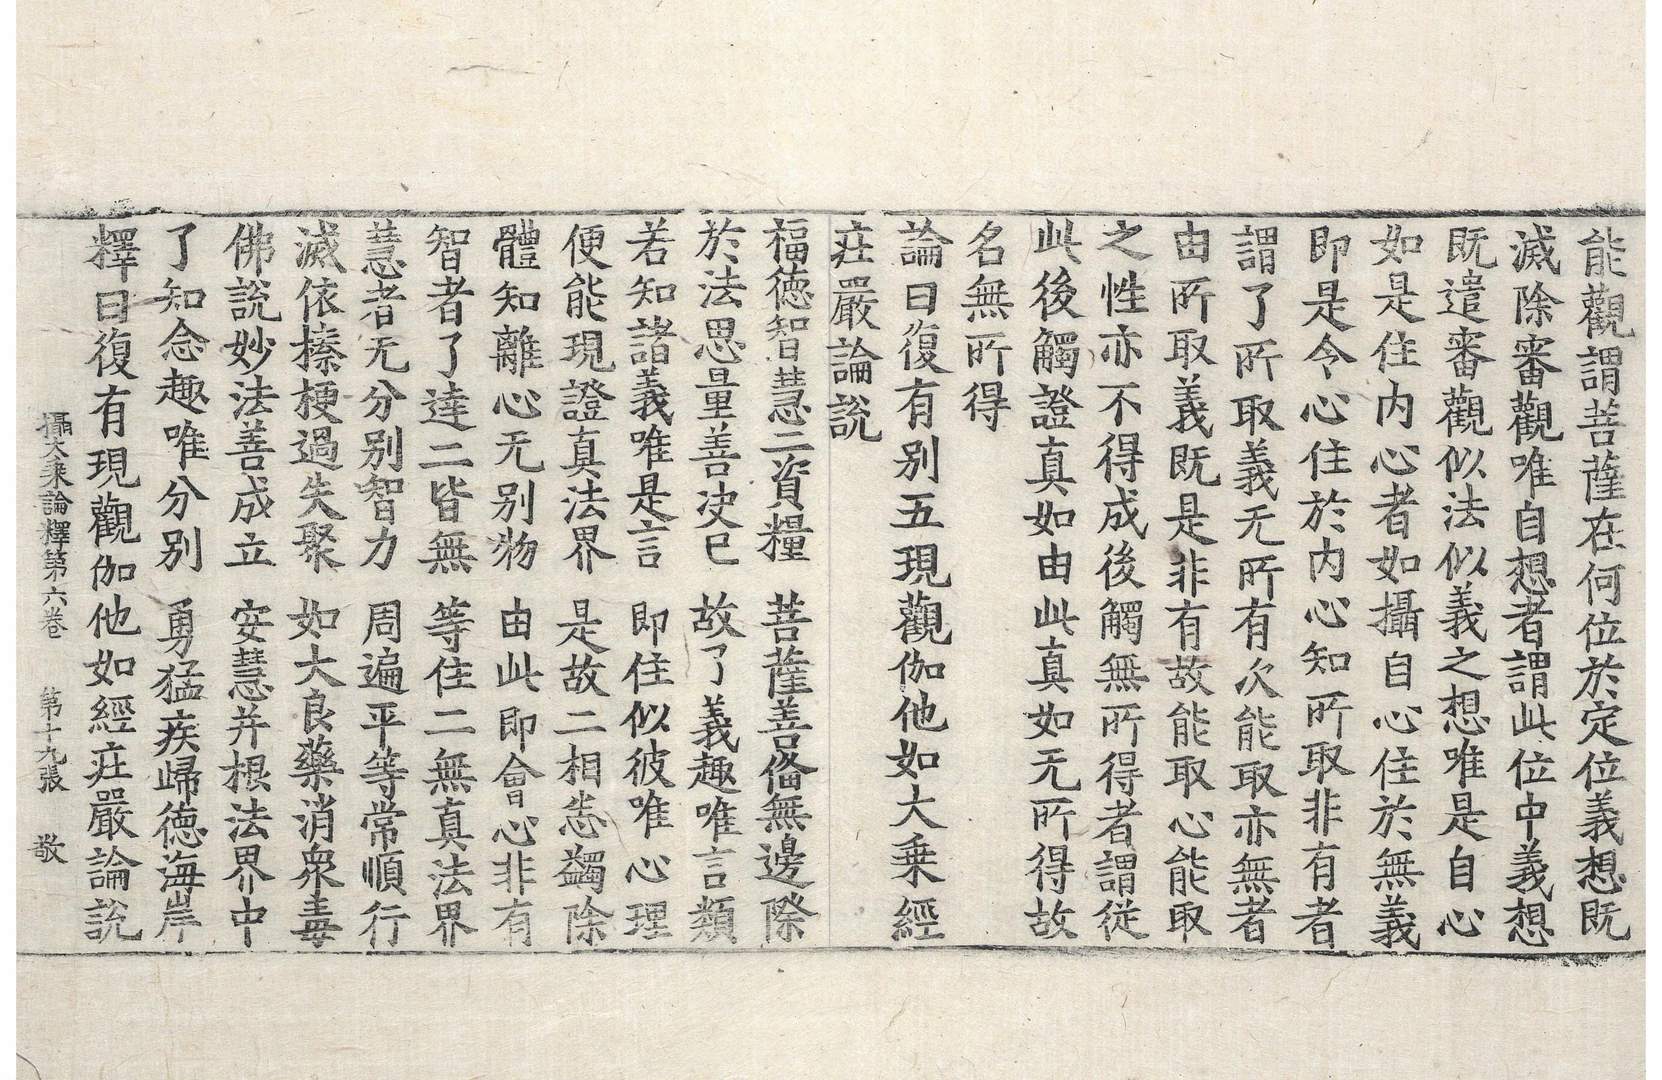 能觀謂菩薩在何位於定位義想既
滅除審觀唯自想者謂此位中義想
既遣審觀似法似義之想唯是自心
如是住内心者如攝自心住於無義
即是令心住於内心知所取非有者
謂了所取義无所有次能取亦無者
由所取義既是非有故能取心能取
之性亦不得成後觸無所得者謂從
此後觸證真如由此真如无所得故
名無所得
論曰復有别五現觀伽他如大乗經
莊嚴論說
福徳智慧二資糧　菩薩善俻無邊際
於法思量善决已　故了義趣唯言類
若知諸義唯是言　即住似彼唯心理
便能現證真法界　是故二相悉蠲除
體知離心无别物　由此即會心非有
智者了達二皆無　等住二無真法界
慧者无分别智力　周遍平等常順行
滅依榛梗過失聚　如大良藥消衆毒
佛說妙法善成立　安慧并根法界中
了知念趣唯分别　勇猛疾歸徳海岸
釋曰復有現觀伽他如經莊嚴論說
攝大乗論釋第六卷　第十九張　敬